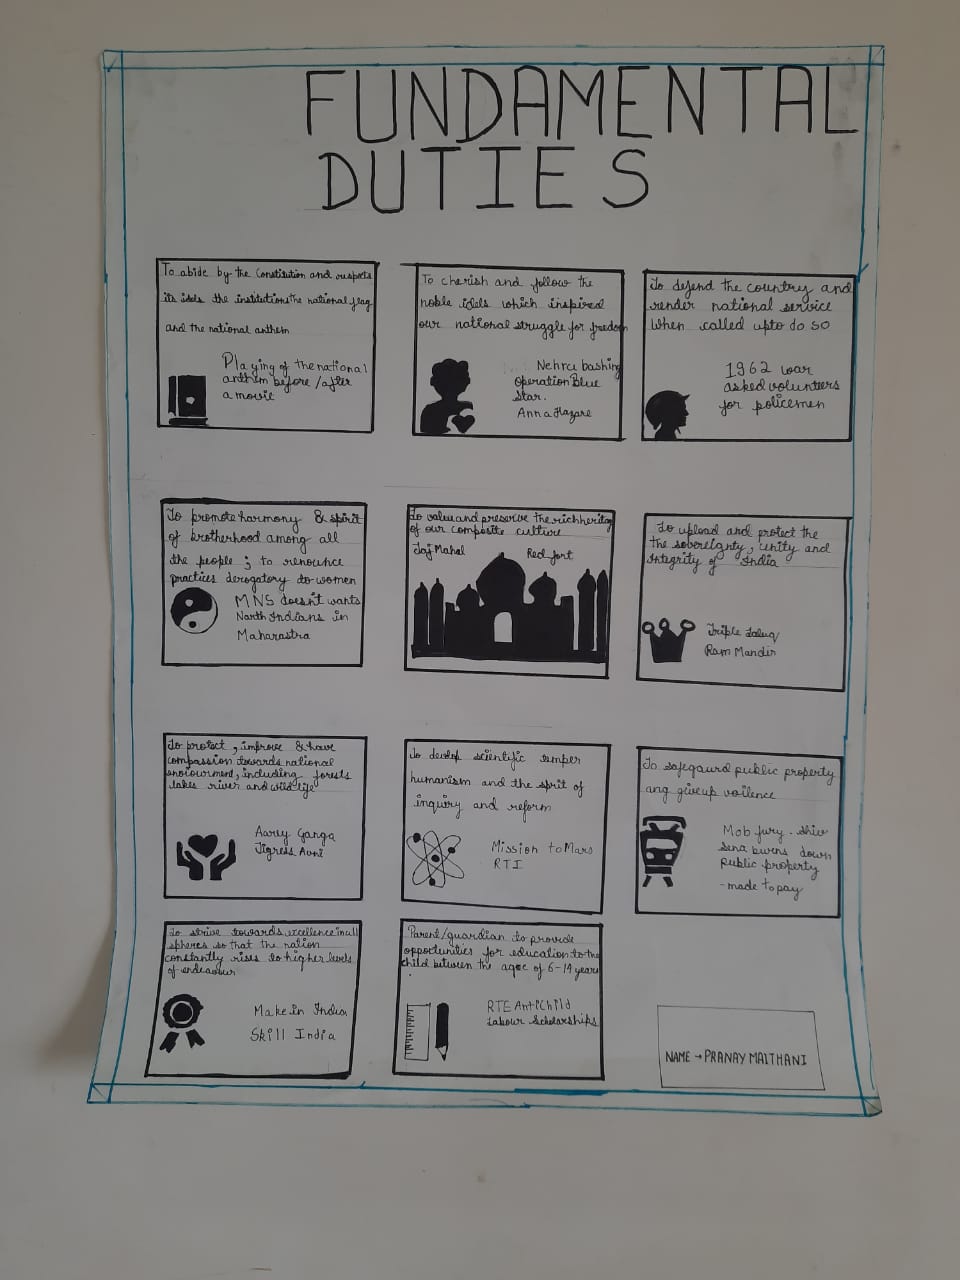 FUNDAMENTAL
DUTIES
To abide by the Constitution and respects
its idels the institutions the national flag
and the national anthem
Playing of the national
anthem before/after
a movie
To cherish and follow the
noble idels which inspired
our national struggle for freedom
Nehru bashing
Operation Blue
Star.
Anna Hazare
To defend the country and
render national service
when called upto do so
1962 war
asked volunteers
for policemen
To promote harmony & spirit
of brotherhood among all
the people ; to renounce
practices derogatory to women
MNS doesn't wants
North Indians in
Maharastra
To value and preserve the rich heritag
of our composite culture
Taj Mahal
Red fort
To upload and protect the
the sovereignty, unity and
Integrity of India
Triple Talaq
Ram Mandir
To protect, improve & have
compassion towards national
including forests
lakes river and wildlife
Aarey Ganga
Tigress Avni
To develop scientific temper
humanism and the sprit of
inquiry and reform
Mission to Mars
RTI
To safegaurd public property
ang giveup voilence
Mob fury. Shiv
Sena burns down
public property
-made to pay
To strive towards excellence in all
spheres so that the nation
constantly rises to higher levels
of endeavour
Make in India
Skill India
Parent/guardian to provide
opportunities for education to the
child between the of 6-14 years
RTE Anti Child
Labour Scholarships
NAME → PRANAY MAITHANI